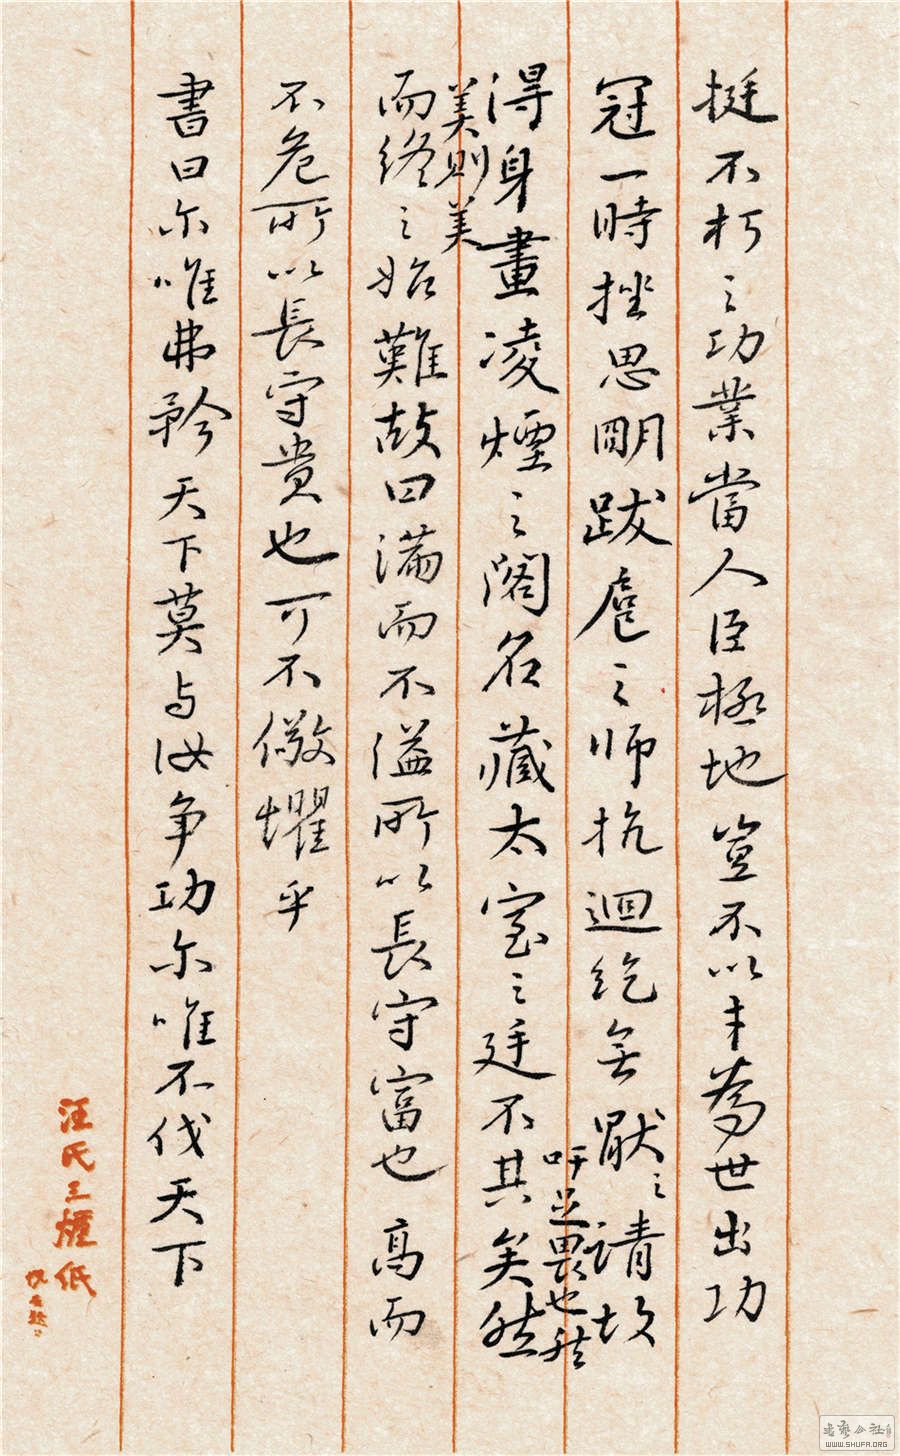 挺不朽之功業當人臣極地豈不以才為世出功
冠一時挫思明跋扈之師抗迴紇無厭之請故
吁足畏也然
得身畫凌煙之閣名藏太室之廷不其矣然
美則美
而終之始難故曰滿而不溢所以長守富也高而
不危所以長守貴也可不儆懼乎
書曰尔唯弗矜天下莫与汝争功尔唯不伐天下
汪氏紙
書藝公社
WWW.SHUFA.ORG